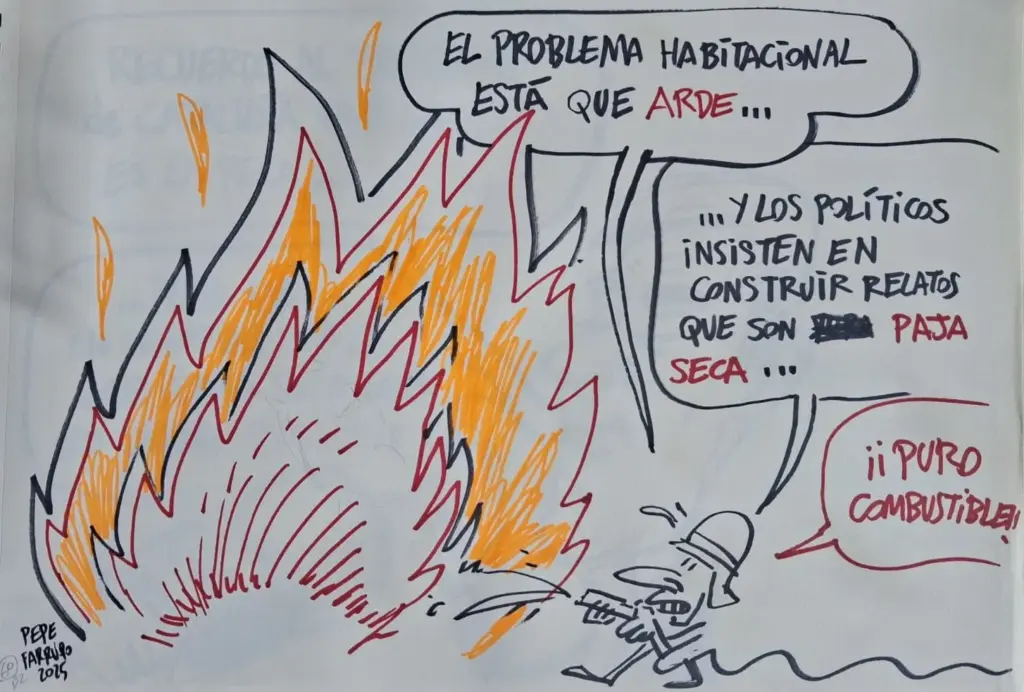 EL PROBLEMA HABITACIONAL
ESTÁ QUE ARDE...
...Y LOS POLÍTICOS
INSISTEN EN
CONSTRUIR RELATOS
QUE SON PAJA
SECA...
¡¡PURO
COMBUSTIBLE!!
PEPE
FARRUQO
2025